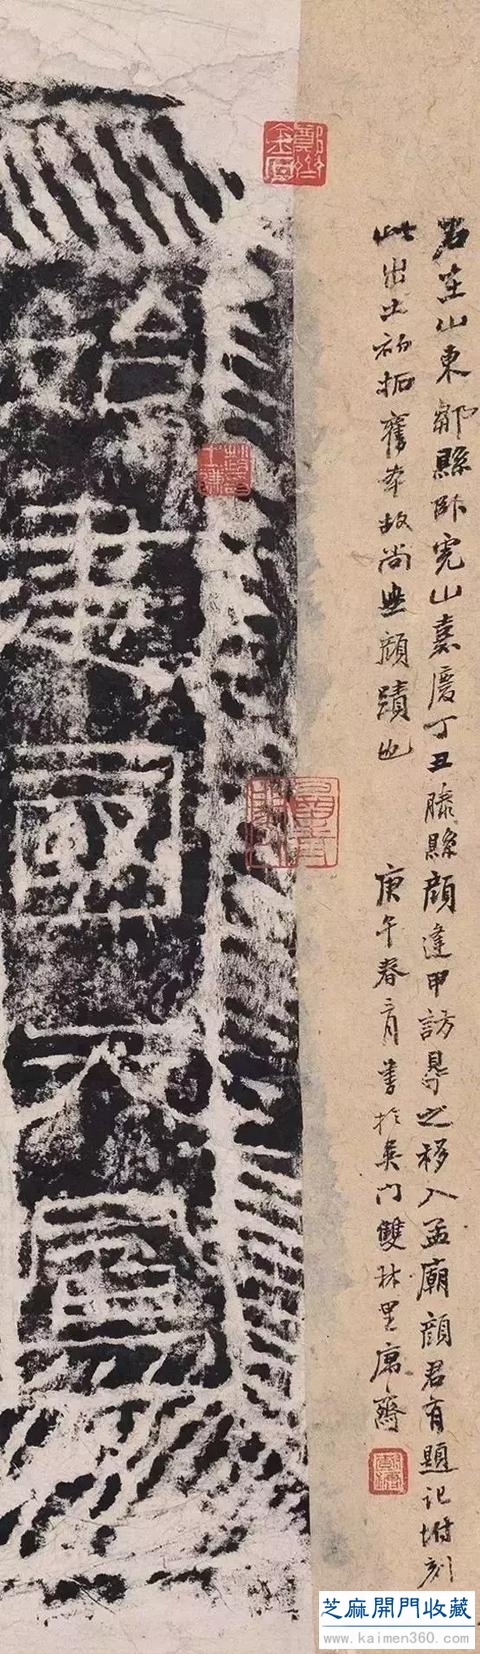 石在山東鄒縣卧虎山嘉慶丁丑滕縣顔逢甲訪㝵之移入孟廟顔君有題記坿刻
此出土初拓舊本故尚無顔蹟也 庚午春二月書於吳門雙林里寓齋
始建國天鳳
芝麻開門收藏
www.kaimen360.com